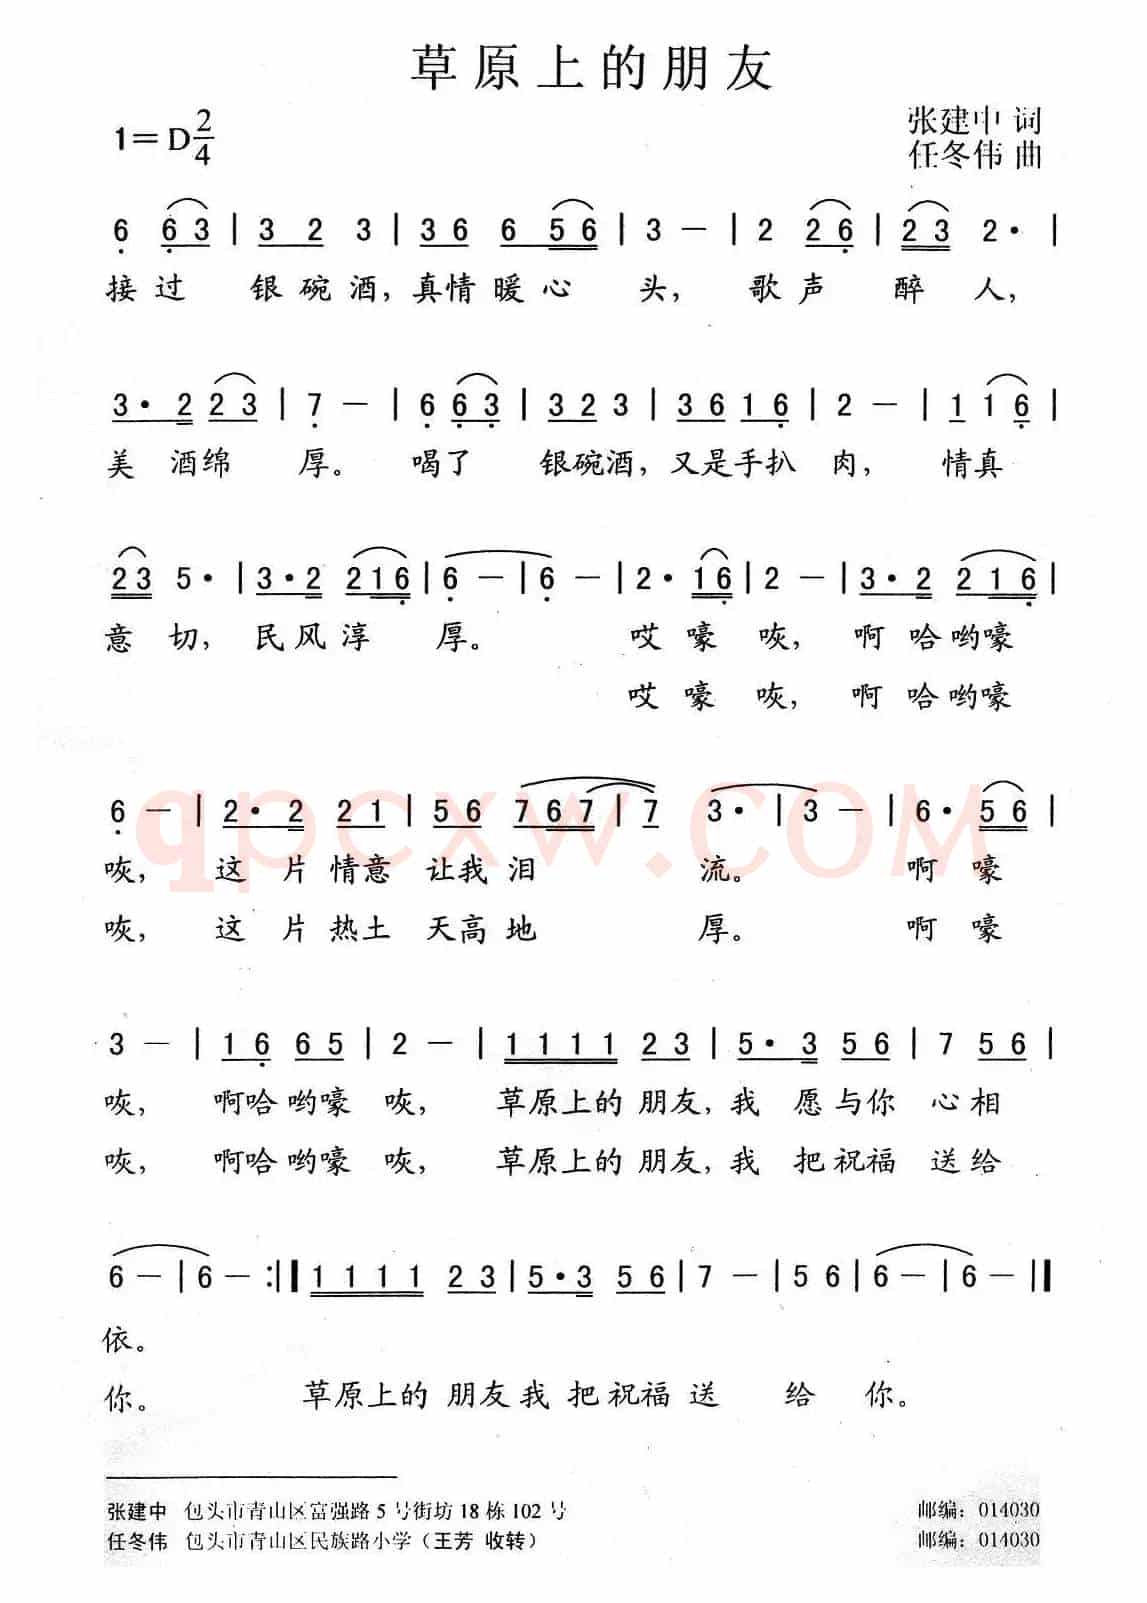 草原上的朋友
1=D 2/4
张建中 词
任冬伟 曲
6 6 3 | 3 2 3 | 3 6 6 5 6 | 3 — | 2 2 6 | 2 3 2· |
接过 银碗酒,真情暖心 头, 歌声 醉 人,
3· 2 2 3 | 7 — | 6 6 3 | 3 2 3 | 3 6 1 6 | 2 — | 1 1 6 |
美 酒绵 厚。 喝了 银碗酒,又是手扒 肉, 情真
2 3 5· | 3·2 2 1 6 | 6 — | 6 — | 2· 1 6 | 2 — | 3· 2 2 1 6 |
意 切, 民风淳 厚。 哎 嚎 咴, 啊 哈哟嚎
哎 嚎 咴, 啊 哈哟嚎
6 — | 2· 2 2 1 | 5 6 7 6 7 | 7 3· | 3 — | 6· 5 6 |
咴, 这 片 情意 让我 泪 流。 啊 嚎
咴, 这 片 热土 天高 地 厚。 啊 嚎
3 — | 1 6 6 5 | 2 — | 1 1 1 1 2 3 | 5· 3 5 6 | 7 5 6 |
咴, 啊哈 哟嚎 咴, 草原上的 朋友,我 愿与你 心相
咴, 啊哈 哟嚎 咴, 草原上的 朋友,我 把祝福 送给
6 — | 6 — :‖ 1 1 1 1 2 3 | 5·3 5 6 | 7 — | 5 6 | 6 — | 6 — ‖
依。
你。 草原上的 朋友我 把祝福 送 给 你。
张建中 包头市青山区富强路5号街坊18栋102号 邮编：014030
任冬伟 包头市青山区民族路小学（王芳 收转） 邮编：014030
qpcxw.COM